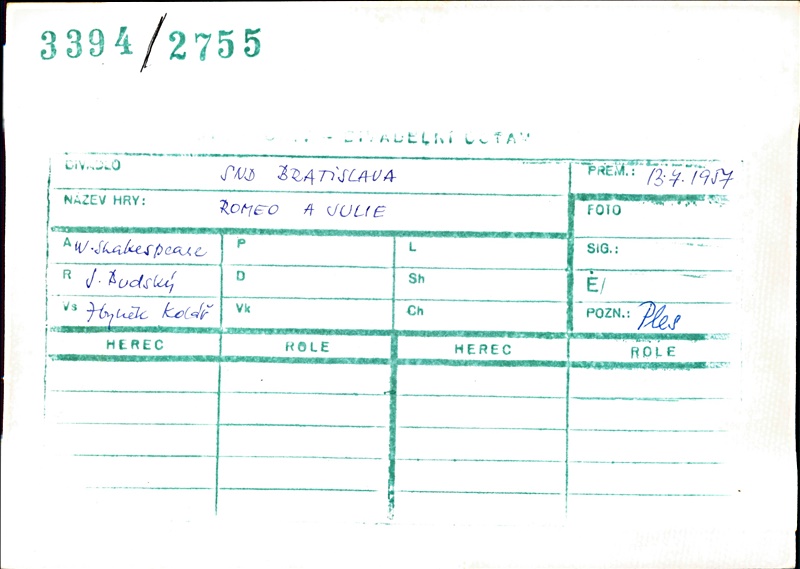 3394/2755
DIVADELNÍ ÚSTAV
DIVADLO SND BRATISLAVA PREM.: 13.7.1957
NÁZEV HRY: ROMEO A JULIE FOTO
A W. Shakespeare P L SIG.:
R J. Budský D Sh Ė/
Vs Zbyněk Kolář Vk Ch POZN.: Ples
HEREC ROLE HEREC ROLE